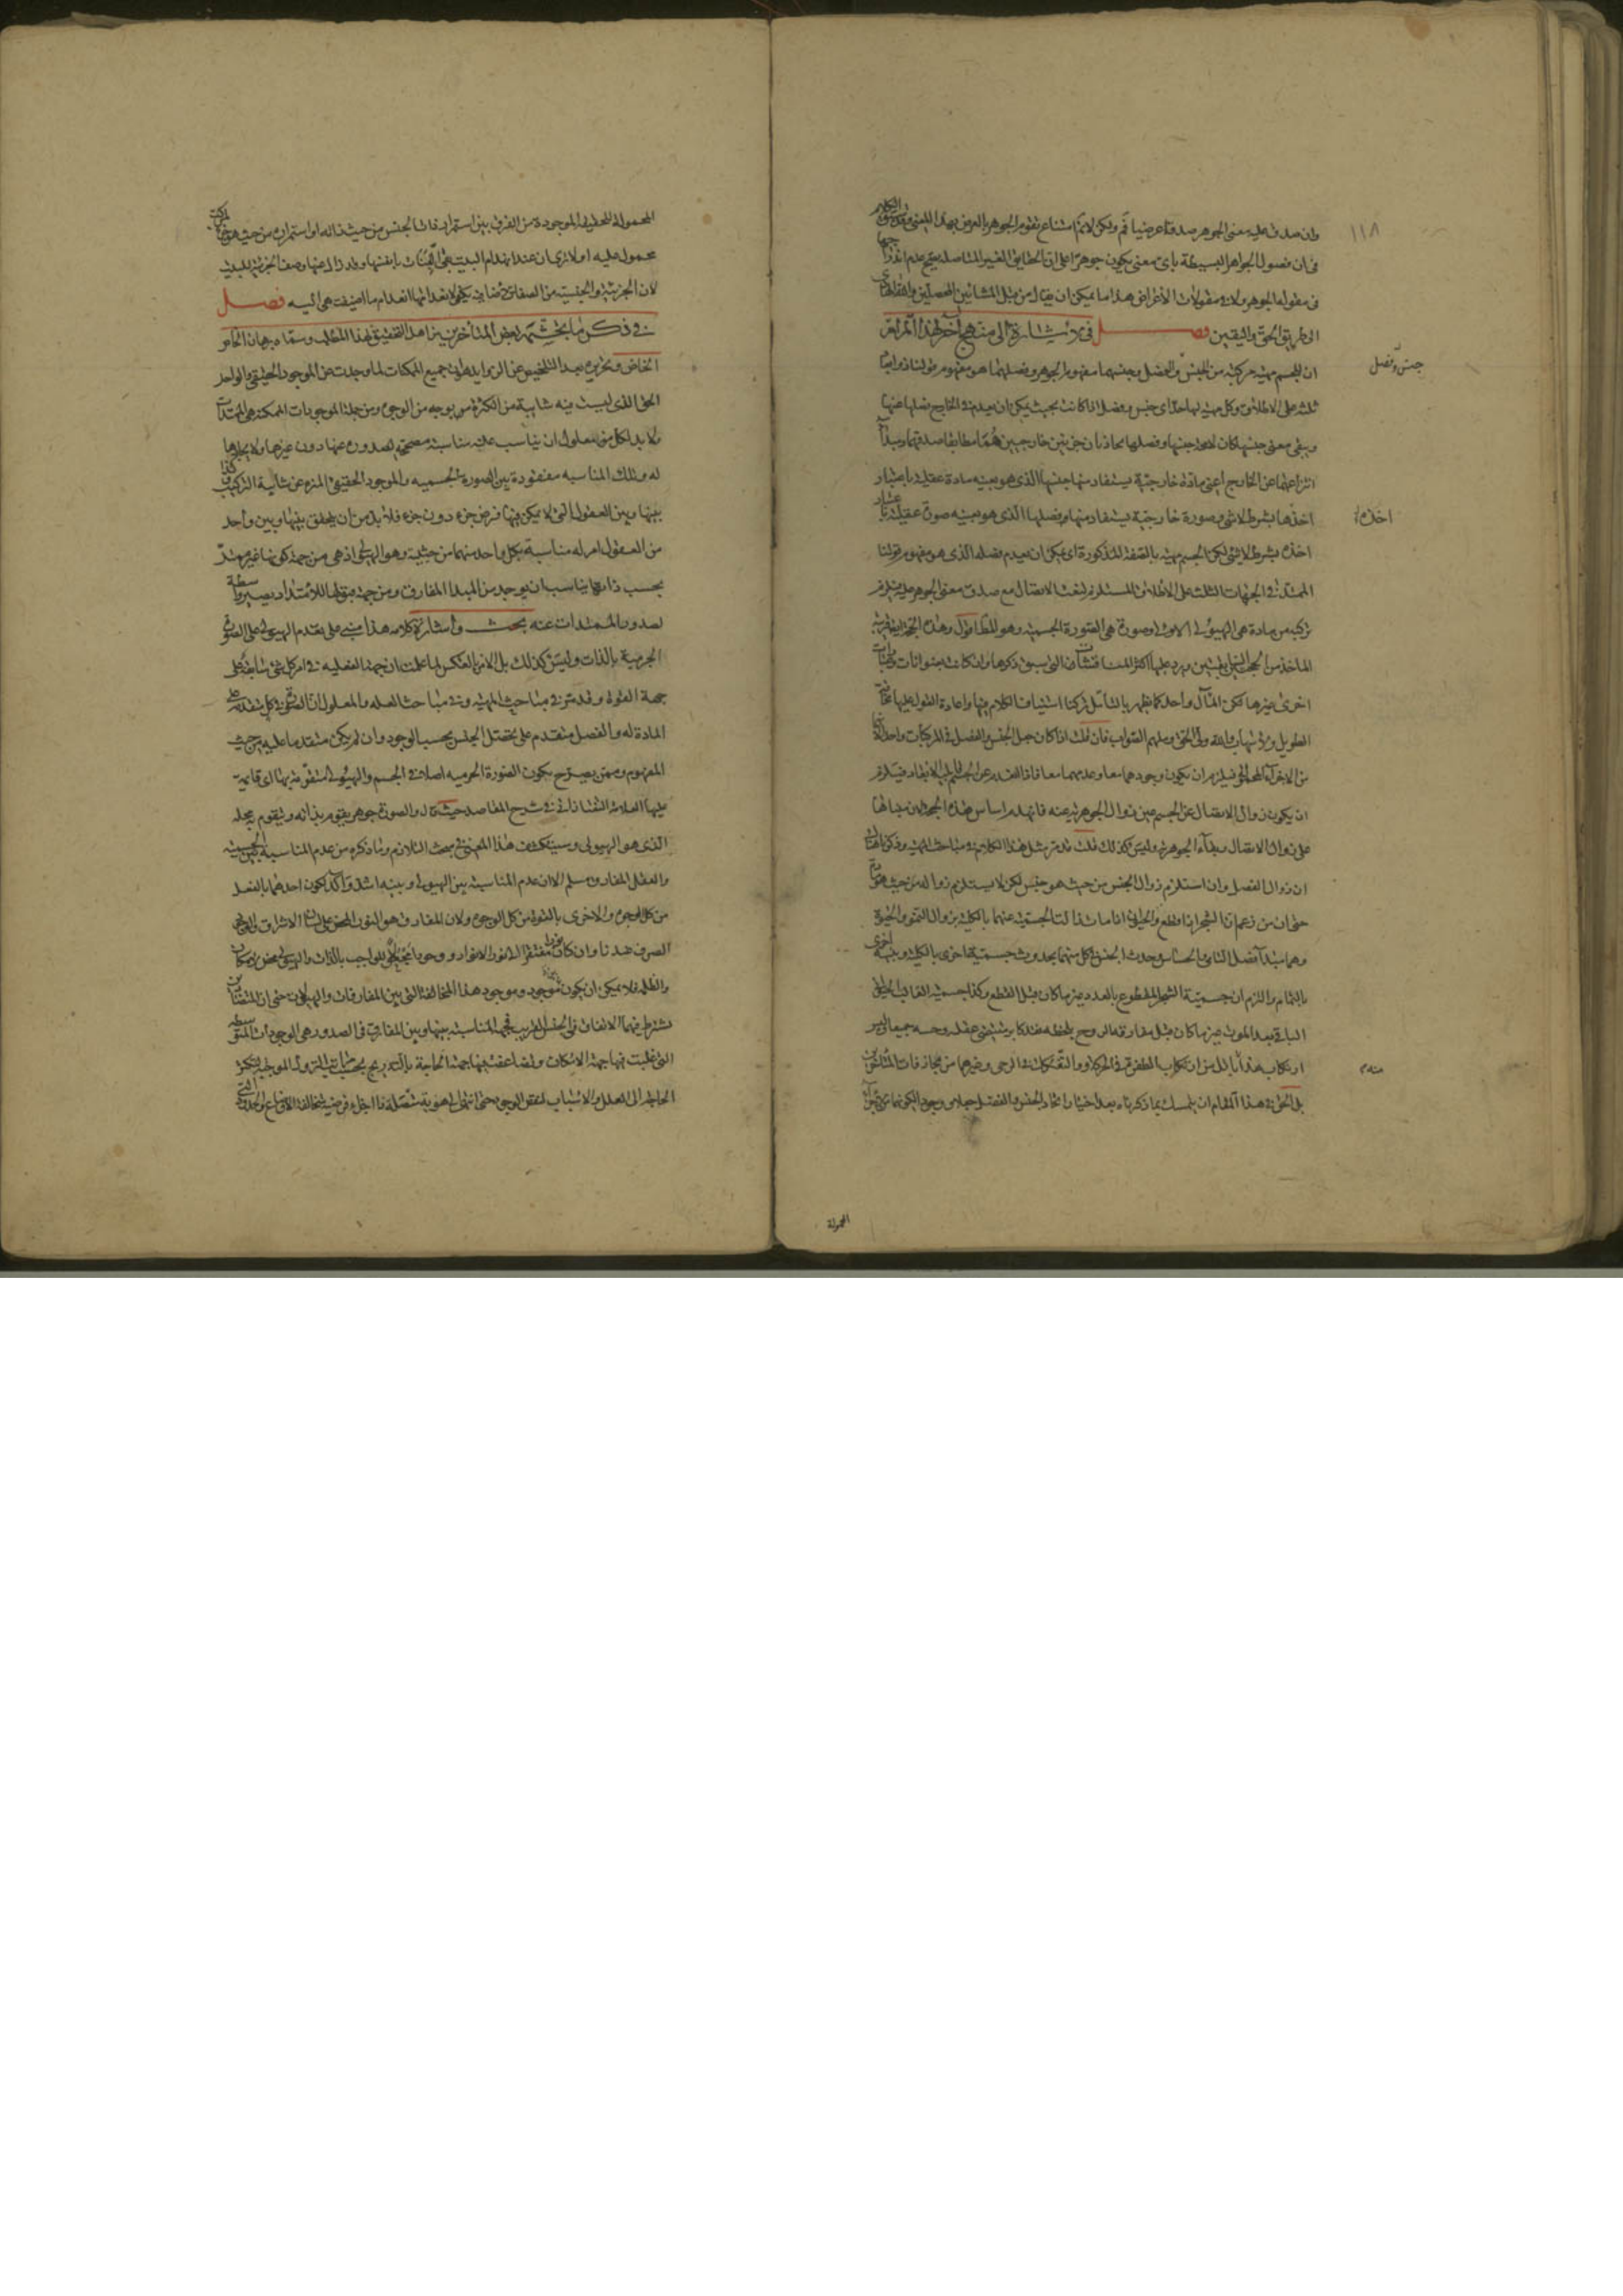 ١١٨
وان صدق عليه معنى الجوهر صدقا عرضيا نعم ولكن لانم امتناع تقوم الجوهر بالعرض بهذا المعنى وقد سبق الكلام
فى ان فصول الجواهر البسيطة باى معنى يكون جوهرا على ان الحقايق الغير المتاصله يصح عدم اندراجها
فى مقولة الجوهر ولا فى مقولات الاعراض هذا ما يمكن ان يقال من قبل المشائين المحصلين
الى طريق الحق واليقين فصل فى الاشارة الى منهج آخر لهذا المرام
ان للجسم مهية مركبة من الجنس والفصل وجنسها مفهوم الجوهر وفصلها هو مفهوم قولنا ذو ابعاد
جنس وفصل
ثلثه على الاطلاق وكل مهية لها حد اى جنس وفصل اذا كانت بحيث يمكن ان يعدم فى الخارج فصلها عنها
ويبقى معنى جنسها كان لا محة جنسها وفصلها يحاذيان جزئين خارجيين هما مطابقا صدقهما ومبدأ
انتزاعهما عن الخارج اعنى مادة خارجية يستفاد منها جنسها الذى هو بعينه مادة عقلية باعتبار
اخذها بشرط لا شئ وصورة خارجية يستفاد منها فصلها الذى هو بعينه صورة عقلية باعتبار
اخذه
اخذه بشرط لا شئ لكن الجسم مهية بالصفة المذكورة اى يمكن ان يعدم فصله الذى هو مفهوم قولنا
الممتد فى الجهات الثلث على الاطلاق المستلزم الاتصال مع صدق معنى الجوهر عليه فيلزم
تركبه من مادة هى الهيولى الاولى وصورة هى الصورة الجسمية وهو المط اقول وهذه الحجة قريبة
الماخذ من الحجتين السابقتين ويرد عليها اكثر المناقشات التى سبق ذكرها وان كانت بعنوانات وعبارات
اخرى غيرها لكن المآل واحد كما يظهر بالتأمل تركنا استيناف الكلام فيها واعادة القول عليها مخافة
الطويل والله ولى الحق وملهم الصواب فان قلت اذا كان جعل الجنس والفصل فى المركبات واحدا
من الاجزاء المحمولة فيلزم ان يكون وجودهما معا وعدمهما معا فاذا
ان يكون زوال الاتصال عن الجسم عين زوال الجوهرية عنه فانهدم اساس هذه الحجة لان مبناها
على زوال الاتصال وبقاء الجوهرية وليس كذلك قلت قد مر مثل هذا الكلام فى مباحث المهية وذكرنا هناك
ان زوال الفصل وان استلزم زوال الجنس من حيث هو جنس لكن لا يستلزم زواله من حيث هو مادة
حتى ان من زعم ان الشجر اذا قطع والحيوان اذا مات زالت الجسمية عنهما بالكلية بزوال النمو والحيوة
وهما مبدآ فصل النامى والحساس وحدث الجنس فى كل منهما بحدوث جسمية اخرى بالكلية
بالتمام والزم ان جسمية الشجر المقطوع بالعدد غير ما كان قبل القطع وكذا جسمية القالب
الباقى بعد الموت غير ما كان قبل مفارقة الروح بلحظة فقد كابر مقتضى عقله وحسه جميعا وليس
ارتكاب هذا باقل من ارتكاب الطفرة فى الحركة والتفكك فى الرحى وغيرهما من مجازفات المتكلمين
منه
بل الحق فى هذا المقام ان يتمسك بما ذكرناه بعد اختيار اتحاد الجنس والفصل جعلا ووجودا
المحمولة
المحمولة الموجودة من الفرق بين استمرار ذات الجنس من حيث ذاته او استمراره من حيث هو جنس
محمول عليه اولا ترى ان عند انهدام البيت يبقى اللبنات بانفسها وقد زال عنها وصف الجزئية للبيت
لان الجزئية والجنسية من الصفات الاضافية يكفى لانعدامها انعدام ما اضيفت هى اليه فصل
فى ذكر ما تجشمه بعض المتأخرين من اهل التحقيق لهذا المطلب وسماه برهان الخاص
الخاص وتحريره بعد التلخيص عن الزوايد هو ان جميع الممكنات لما وجدت عن الموجود الحقيقى والواحد
الحق الذى ليست فيه شائبة من الكثرة بوجه من الوجوه ومن جملة الموجودات الممكنة هى الممتدات
ولا بد لكل من معلول ان يناسب علته مناسبة مصححة لصدوره عنها دون غيرها
له وتلك المناسبه مفقودة بين الصورة الجسميه والموجود الحقيقى المنزه عن شائبة التركيب وكذا
بينها وبين العقول التى لا يمكن فيها فرض جزء دون جزء فلا بد من ان يتحقق بينها وبين واحد
من العقول امر له مناسبة بكل واحد منهما من حيثية وهو الهيولى اذ هى من جهة كونها غير ممتد
بحسب ذاتها يناسب ان يوجد من المبدأ المفارق ومن جهة قبولها للامتداد يصير واسطة
لصدور الممتدات عنه بحث واشارة كلامه هذا مبنى على تقدم الهيولى على الصورة
الجرمية بالذات وليس كذلك بل الامر بالعكس لما علمت ان جهة الفعليه فى امر كل شئ سابقة على
جهة القوة وقد مر فى مباحث المهية وفى مباحث العله والمعلول ان الصورة فى كل شئ متقدمة على
المادة له والفصل متقدم على محصل الجنس بحسب الوجود وان لم يكن متقدما عليه من حيث
المفهوم وممن يصرح بكون الصورة الجرميه اصلا فى الجسم والهيولى متقومة بها
عليها العلامة التفتازانى فى شرح المقاصد حيث قال والصورة جوهر يقوم بذاته ويتقوم به محله
الذى هو الهيولى وسينكشف هذا المعنى فى مبحث التلازم وما ذكره من عدم المناسبة بين الجسمية
والعقل المفارق مسلم الا ان عدم المناسبة بين الهيولى وبينه اشد وآكد لكون احدهما بالفعل
من كل الوجوه والاخرى بالقوة من كل الوجوه ولان المفارق هو النور المحض على لسان الاشراق والوجود
الصرف عندنا وان كان مفتقرا الى نور الانوار ووجود الواجب بالذات والهيولى محض
والظلمة فلا يمكن ان يكون موجود وموجود هذا المخالفة التى بين المفارقات والهيولى
يشترط فيهما الاتفاق فى الجنس القريب المناسبة بينها وبين المفارق فى الصدور هى الوجودات المتوسطة
التى غلبت فيها جهة الامكان وتضاعفت فيها جهة الحاجة بالتدريج بحسب مراتب النزول الموجبة لتكثر
الحاجة الى العلل والاسباب لنقص الوجود حتى انتهى الى هوية متصلة ذا اجزاء فرضية متخالفة الاوضاع